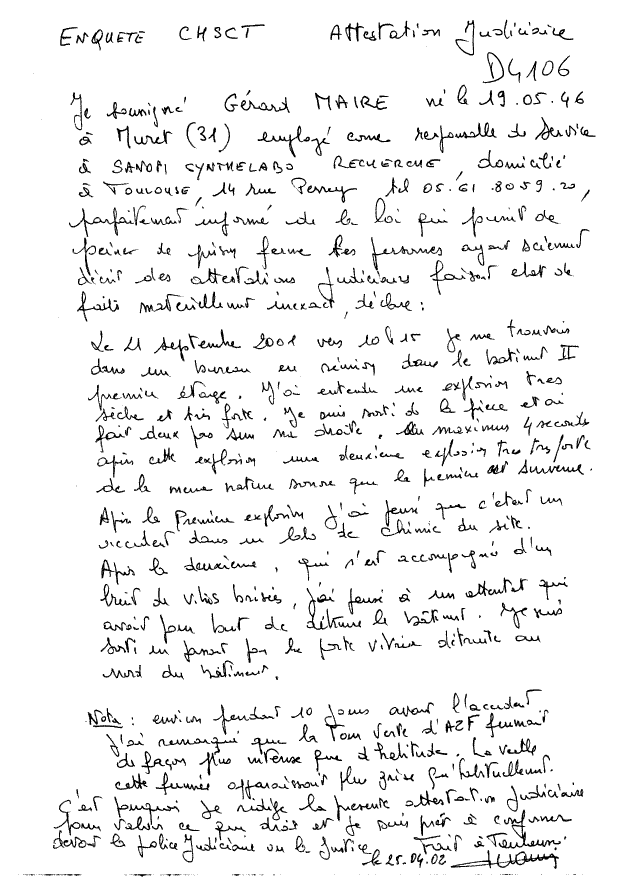 ENQUETE CHSCT Attestation Judiciaire
D4106
Je sousigné Gérard MAIRE né le 19.05.46
à Muret (31) employé come responsable de service
à SANOFI SYNTHELABO RECHERCHE, domicilié
à TOULOUSE, 14 rue Perrey tel 05.61.8059.20,
parfaitement informé de la loi qui punit de
peines de prison ferme les personnes ayant sciemment
décrit des attestations judiciaires faisant etat de
faits materiellement inexact, déclare :
Le 21 septembre 2001 vers 10h15 je me trouvais
dans un bureau en réunion dans le batiment II
premier étage. J'ai entendu une explosion tres
sèche et très forte. Je suis sorti de la pièce et ai
fait deux pas sur ma droite. Au maximum 4 secondes
après cette explosion une deuxième explosion tres tres forte
de la meme nature sonore que la premiere est survenue.
Après la Première explosion j'ai pensé que c'etait un
accident dans un labo de chimie du site.
Après la deuxième, qui s'est accompagnée d'un
bruit de vitres brisées, j'ai pensé à un attentat qui
avait pour but de détruire le bâtiment. Je suis
sorti en passant par la porte vitrée détruite au
nord du bâtiment.
Nota : environ pendant 10 jours avant l'accident
j'ai remarqué que la Tour Verte d'AZF fumait
de façon plus intense que d'habitude. La veille
cette fumée apparaissait plus grise qu'habituellement.
C'est pourquoi je rédige la présente attestation judiciaire
pour valoir ce que droit et je suis prêt à confirmer
devant la police Judiciaire ou la Justice Fait à Toulouse
le 25.04.02